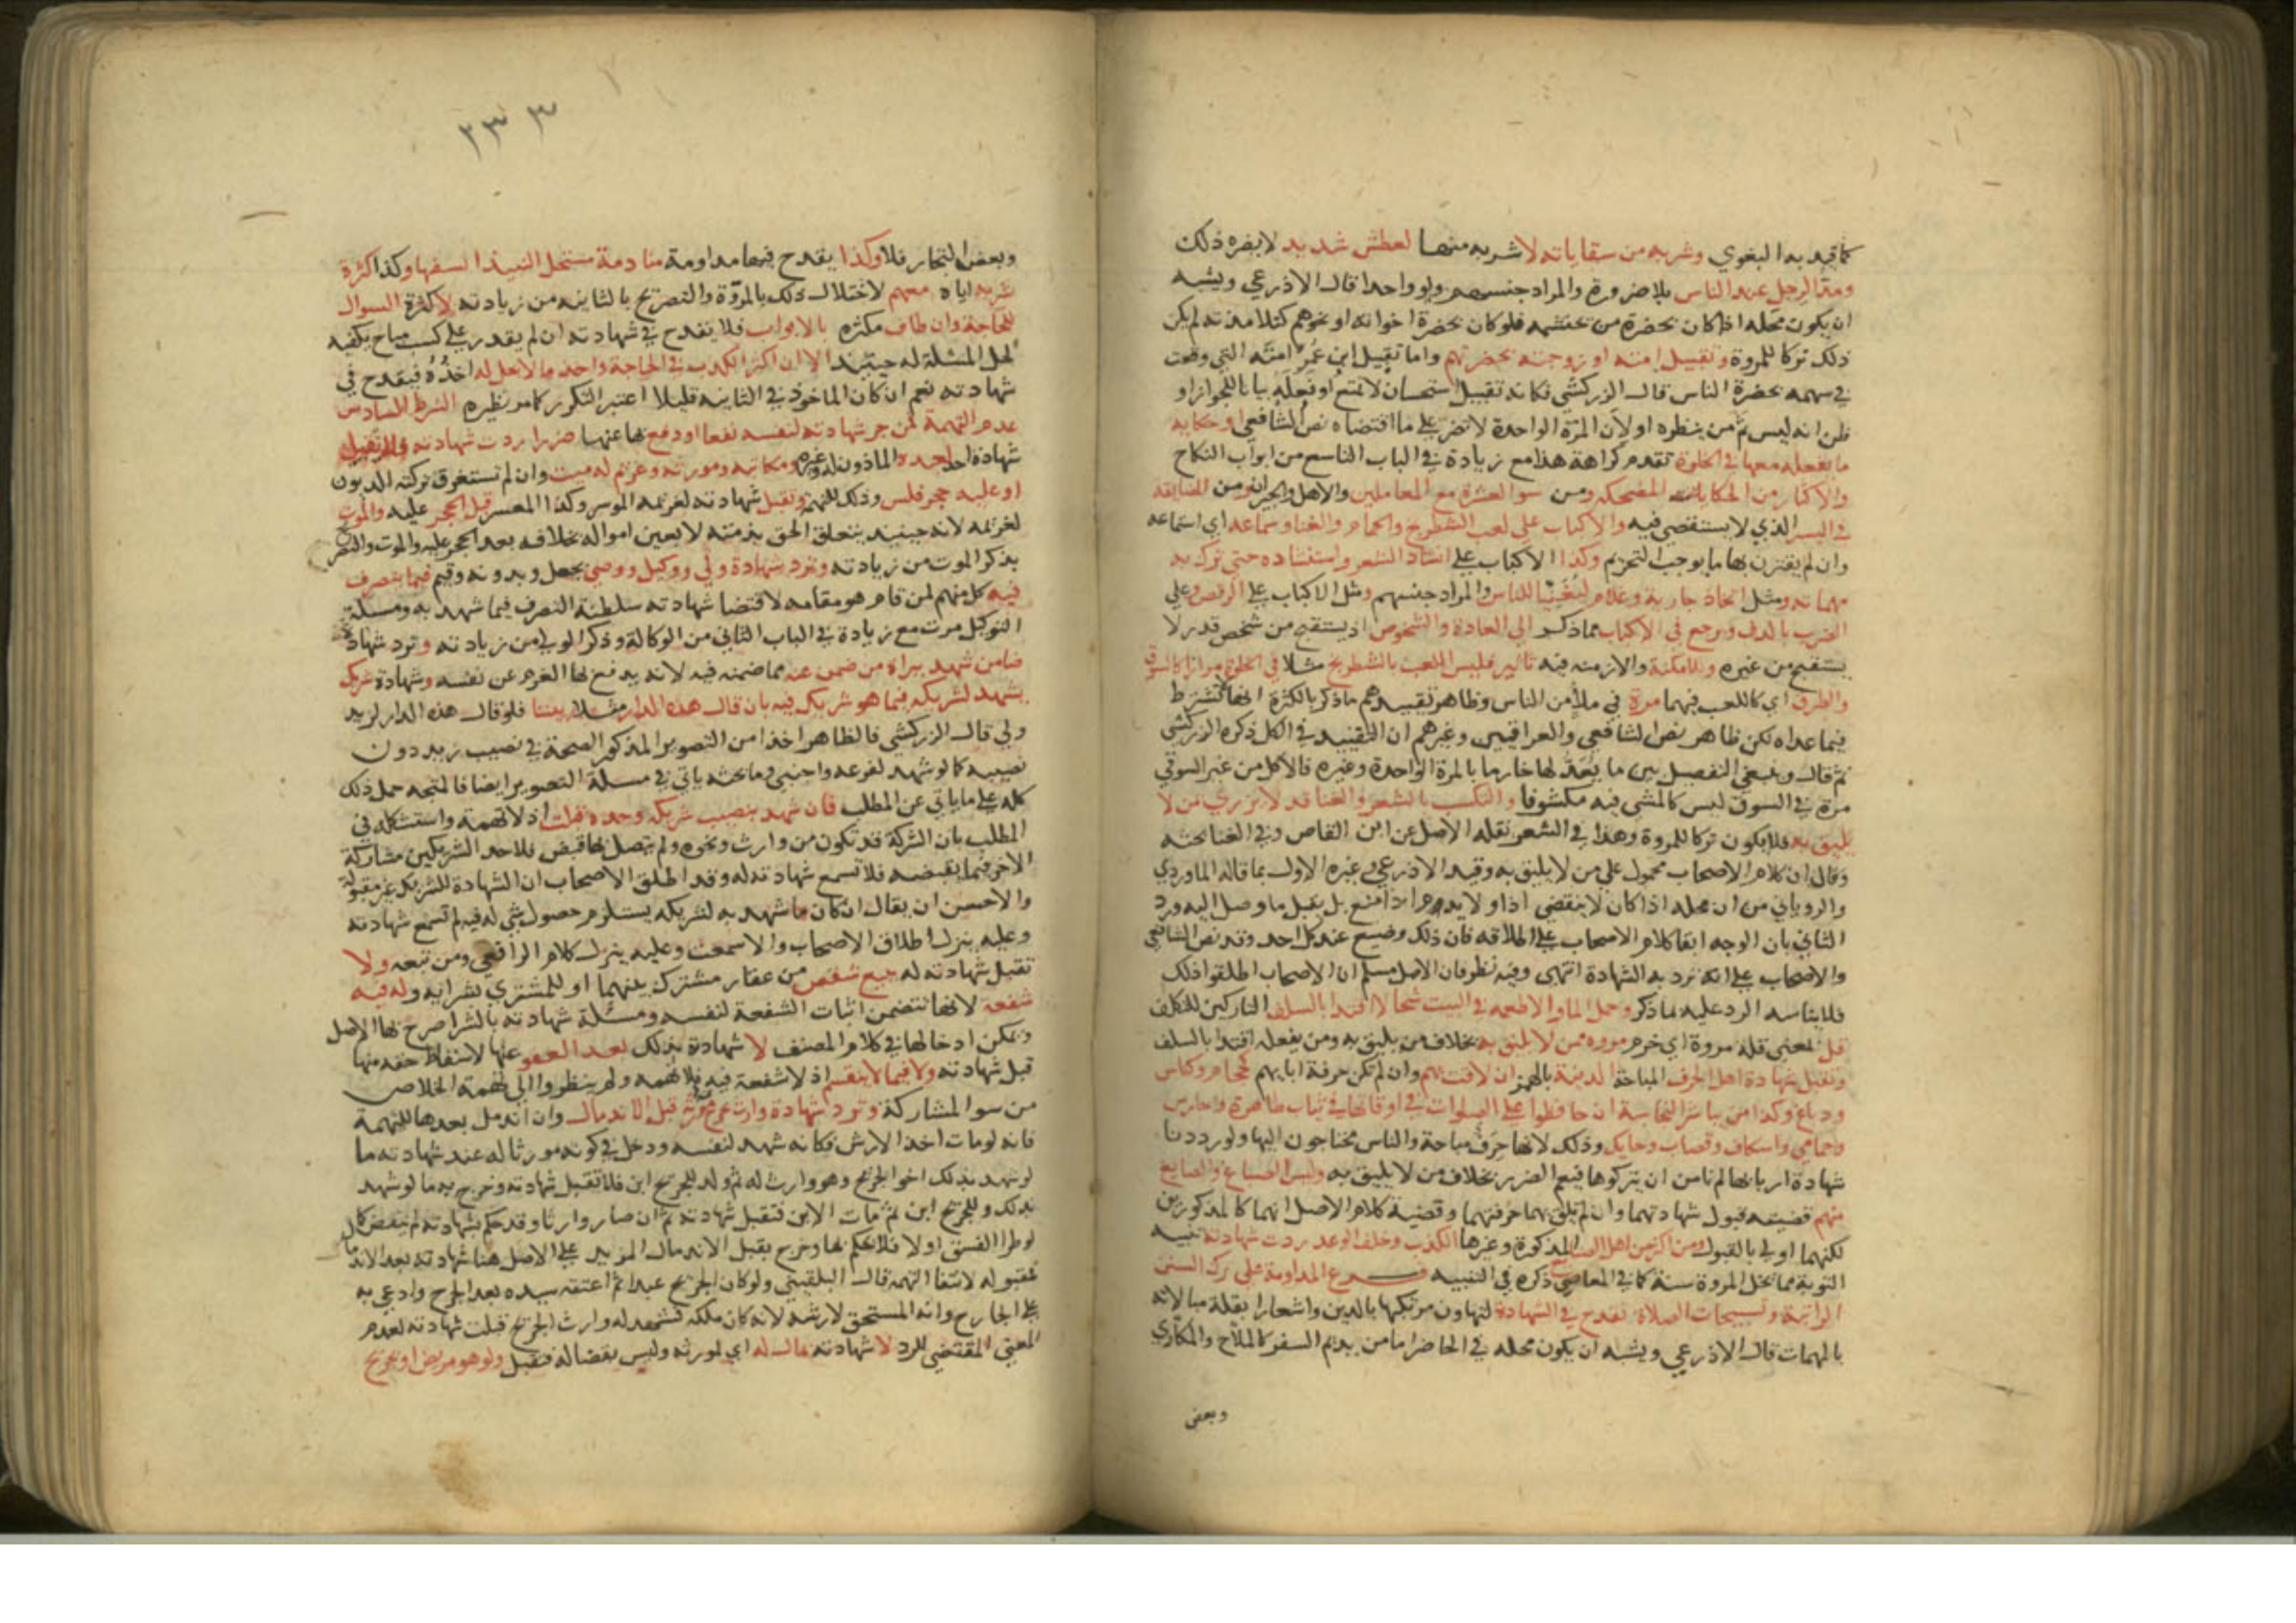 كما قيد به البغوي وشربه من سقاياته لا شربه منها لعطش شديد لا يضره ذلك
ومد الرجل عند الناس بلا ضرورة والمراد جنسهم ولو واحدا قال الاذرعي ويشبه
ان يكون محله اذا كان بحضرة من يحتشمه فلو كان بحضرة اخوانه او نحوهم كتلامذته لم يكن
ذلك تركا للمروة وتقبيل امته او زوجته بحضرتهم واما تقبيل ابن عمر امته التي وقعت
في سهمه بحضرة الناس قال الزركشي فكانه تقبيل استحسان لا تمتع او فعله بيانا للجواز او
ظن انه ليس ثم من ينظره او لان المرة الواحدة لا تضر على ما اقتضاه نص الشافعي او حكاية
ما يفعله معها في الخلوة تقدم كراهة هذا مع زيادة في الباب التاسع من ابواب النكاح
والاكثار من الحكايات المضحكه ومن سوا العشرة مع المعاملين والاهل والجيران ومن المضايقة
في اليسر الذي لا يستقصي فيه والاكباب على لعب الشطرنج والحمام والغنا وسماعه اي استماعه
وان لم يقترن بها ما يوجب التحريم وكذا الاكباب على انشاد الشعر واستنشاده حتى ترك به
مهماته ومثل اتخاذ جارية وغلام ليغنيا للناس والمراد جنسهم ومثل الاكباب على الرقص وعلى
الضرب بالدف ويرجع في الاكباب مما ذكر الى العادة والشخوص اذ يستقبح من شخص قدر لا
يستقبح من غيره وللامكنة والازمنة فيه تاثير فليس اللعب بالشطرنج مثلا في الخلوة مرارا كالسوق
والطرق اي كاللعب فيهما مرة في ملأ من الناس وظاهر تقييدهم ما ذكر بالكثرة انها تشترط
فيما عداه لكن ظاهر نص الشافعي والعراقيين وغيرهم ان التقييد في الكل ذكره الزركشي
ثم قال وينبغي التفصيل بين ما يعد لها خارما بالمرة الواحدة وغيره فالاكل من غير السوقي
مرة في السوق ليس كالمشي فيه مكشوفا والتكسب بالشعر والغنا قد لا يزري بمن لا
يليق به فلا يكون تركا للمروة وهذا في الشعر نقله الاصل عن ابن القاص وفي الغنا بحثه
وقال ان كلام الاصحاب محمول على من لا يليق به وقيد الاذرعي وغيره الاول بما قاله الماوردي
والروياني من ان محله اذا كان لا يقتضي اذا او لا يذم اذا منع بل يقبل ما وصل اليه ورد
الثاني بان الوجه ابقا كلام الاصحاب على اطلاقه فان ذلك وضيع عند كل احد وقد نص الشافعي
والاصحاب على انه ترد به الشهادة انتهى وفيه نظر فان الاصل مسلم ان الاصحاب اطلقوا ذلك
فلا يناسبه الرد عليه بما ذكر وحمل الما والاطعمه في البيت شحا لا اقتدا بالسلف التاركين للتكلف
قل لمعنى قلة مروة اي خرم مروه ممن لا يليق به بخلاف من يليق به ومن يفعله اقتدا بالسلف
وتقبل شهادة اهل الحرف المباحة الدنيئة بالهمز ان لاقت بهم وان لم تكن حرفة ابايهم كحجام وكناس
ودباغ وكذا من باشر النجاسة ان حافظوا على الصلوات في اوقاتها في ثياب طاهرة وحارس
وحمامي واسكاف وقصاب وحايك وذلك لانها حرف مباحة والناس محتاجون اليها ولو رددنا
شهادة اربابها لم نامن ان يتركوها فيعم الضرر بخلاف من لا يليق به وليس الصباغ والصايغ
منهم قضيته قبول شهادتهما وان لم تلق بهما حرفتهما وقضية كلام الاصل انهما كالمذكورين
لكنهما اولى بالقبول ومن اكثر من اهل الصنايع المذكورة وغيرها الكذب وخلف الوعد ردت شهادته تنبيه
التوبة مما يخل المروة سنة كما في المعاصي ذكره في التنبيه فرع المداومة على ترك السنن
الراتبة وتسبيحات الصلاة تقدح في الشهادة لتهاون مرتكبها بالدين واشعارا بقلة مبالاته
بالمهمات قال الاذرعي ويشبه ان يكون محله في الحاضر اما من يديم السفر كالملاح والمكاري
وبعض
٢٣٣
وبعض التجار فلا وكذا يقدح فيها مداومة منادمة مستحل النبيذ السفها وكذا كثرة
شربه اياه معهم لاختلال ذلك بالمروة والتصريح بالثانيه من زيادته لا كثرة السوال
للحاجة وان طاف مكثره بالابواب فلا يقدح في شهادته ان لم يقدر على كسب مباح يكفيه
لحل المسئلة له حينئذ الا ان اكثر الكذب في الحاجة واخذ ما لا يحل له اخذه فيقدح في
شهادته نعم ان كان الماخوذ في الثانيه قليلا اعتبر التكرر كما مر نظيره الشرط السادس
عدم التهمة لمن جر شهادته لنفسه نفعا او دفع بها عنها ضررا ردت شهادته فلا تقبل
شهادة احد لعبده الماذون له وغيره ومكاتبه ومورثه وغريم له ميت وان لم تستغرق تركته الديون
او عليه حجر فلس وذلك للتهمة وتقبل شهادته لغريمه الموسر وكذا المعسر قبل الحجر عليه والموت
لغريمه لانه حينئذ يتعلق الحق بذمته لا بعين امواله بخلافه بعد الحجر عليه والموت والتصريح
بذكر الموت من زيادته وترد شهادة ولي ووكيل ووصي بجعل وبدونه وقيم فيما يتصرف
فيه كل منهم لمن قام هو مقامه لاقتضا شهادته سلطنة التصرف فيما شهد به ومسلة
التوكيل مرت مع زيادة في الباب الثاني من الوكالة وذكر الولي من زيادته وترد شهادة
ضامن شهد ببراة من ضمن عنه مما ضمنه فيه لانه يدفع بها الغرم عن نفسه وشهادة شريك
يشهد لشريكه فيما هو شريك فيه بان قال هذه الدار مثلا بيننا فلو قال هذه الدار لزيد
ولي قال الزركشي فالظاهر اخذا من التصوير المذكور الصحة في نصيب زيد دون
نصيبه كما لو شهد لفرعه واجنبي وما بحثه ياتي في مسلة التصوير ايضا فالمتجه حمل ذلك
كله على ما ياتي عن المطلب فان شهد بنصيب شريكه وحده قبلت اذ لا تهمة واستشكله في
المطلب بان الشركة قد تكون من وارث ونحوه ولم يتصل بها قبض فلاحد الشريكين مشاركة
الاخر فيما يقبضه فلا تسمع شهادته له وقد اطلق الاصحاب ان الشهادة للشريك غير مقبولة
والاحسن ان يقال ان كان ما شهد به لشريكه يستلزم حصول شي له فيه لم تسمع شهادته
وعليه ينزل اطلاق الاصحاب والا سمعت وعليه ينزل كلام الرافعي ومن تبعه ولا
تقبل شهادته له ببيع شقص من عقار مشترك بينهما او للمشتري بشرايه وله فيه
شفعة لانها تتضمن اثبات الشفعة لنفسه ومسئلة شهادته بالشرا صرح بها الاصل
ويمكن ادخالها في كلام المصنف لا شهادة بذلك بعد العفو عنها لاسقاط حقه منها
قبل شهادته ولا فيما لا ينقسم اذ لا شفعة فيه فلا تهمه ولم ينظروا الى تهمة الخلاص
من سوا المشاركة وترد شهادة وارث بجرح مورثه قبل الاندمال وان اندمل بعدها للتهمة
فانه لو مات اخذ الارش فكانه شهد لنفسه ودخل في كونه مورثا له عند شهادته ما
لو شهد بذلك اخو الجريح وهو وارث له ثم ولد للجريح ابن فلا تقبل شهادته وخرج به ما لو شهد
بذلك وللجريح ابن ثم مات الابن فتقبل شهادته ثم ان صار وارثا وقد حكم بشهادته لم ينقض كما
لو طرا الفسق او لا فلا يحكم بها وخرج بقبل الاندمال المزيد على الاصل هنا شهادته بعد الاندمال
فمقبوله لانتفا التهمه قال البلقيني ولو كان الجريح عبدا ثم اعتقه سيده بعد الجرح وادعى به
على الجارح وانه المستحق لارشه لانه كان ملكه فشهد له وارث الجريح قبلت شهادته لعدم
المعنى المقتضي للرد لا شهادته بمال له اي لمورثه وليس بعضا له فتقبل ولو هو مريض او جريح